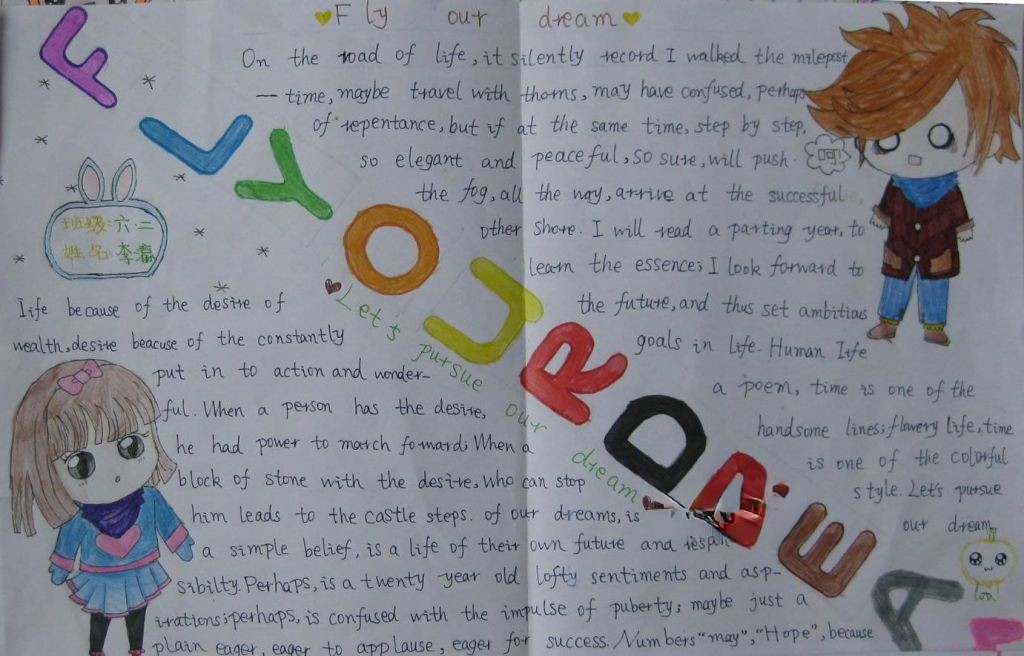 Fly our dream
On the road of life, it silently record I walked the milepost
— time, maybe travel with thorns, may have confused, perhaps
of repentance, but if at the same time, step by step,
so elegant and peaceful, so sure, will push.
呵!
the fog, all the way, arrive at the successful,
other shore. I will read a parting year, to
learn the essence; I look forward to
the future, and thus set ambitious
goals in life. Human life
a poem, time is one of the
handsome lines; flowery life, time
is one of the colorful
style. Let's pursue
our dream
FLY OUR D
EA
Let's pursue our dream
班级:六.二
姓名:李
Life because of the desire of
wealth, desire beacuse of the constantly
put in to action and wonder-
ful. When a person has the desire,
he had power to march forward; When a
block of stone with the desire, who can stop
him leads to the castle steps. of our dreams, is
a simple belief, is a life of their own future and respan
sibilty. Perhaps, is a twenty-year old lofty sentiments and asp-
irations; perhaps, is confused with the impulse of puberty; maybe just a
plain eager, eager to applause, eager for success. Numbers "may", "Hope", because